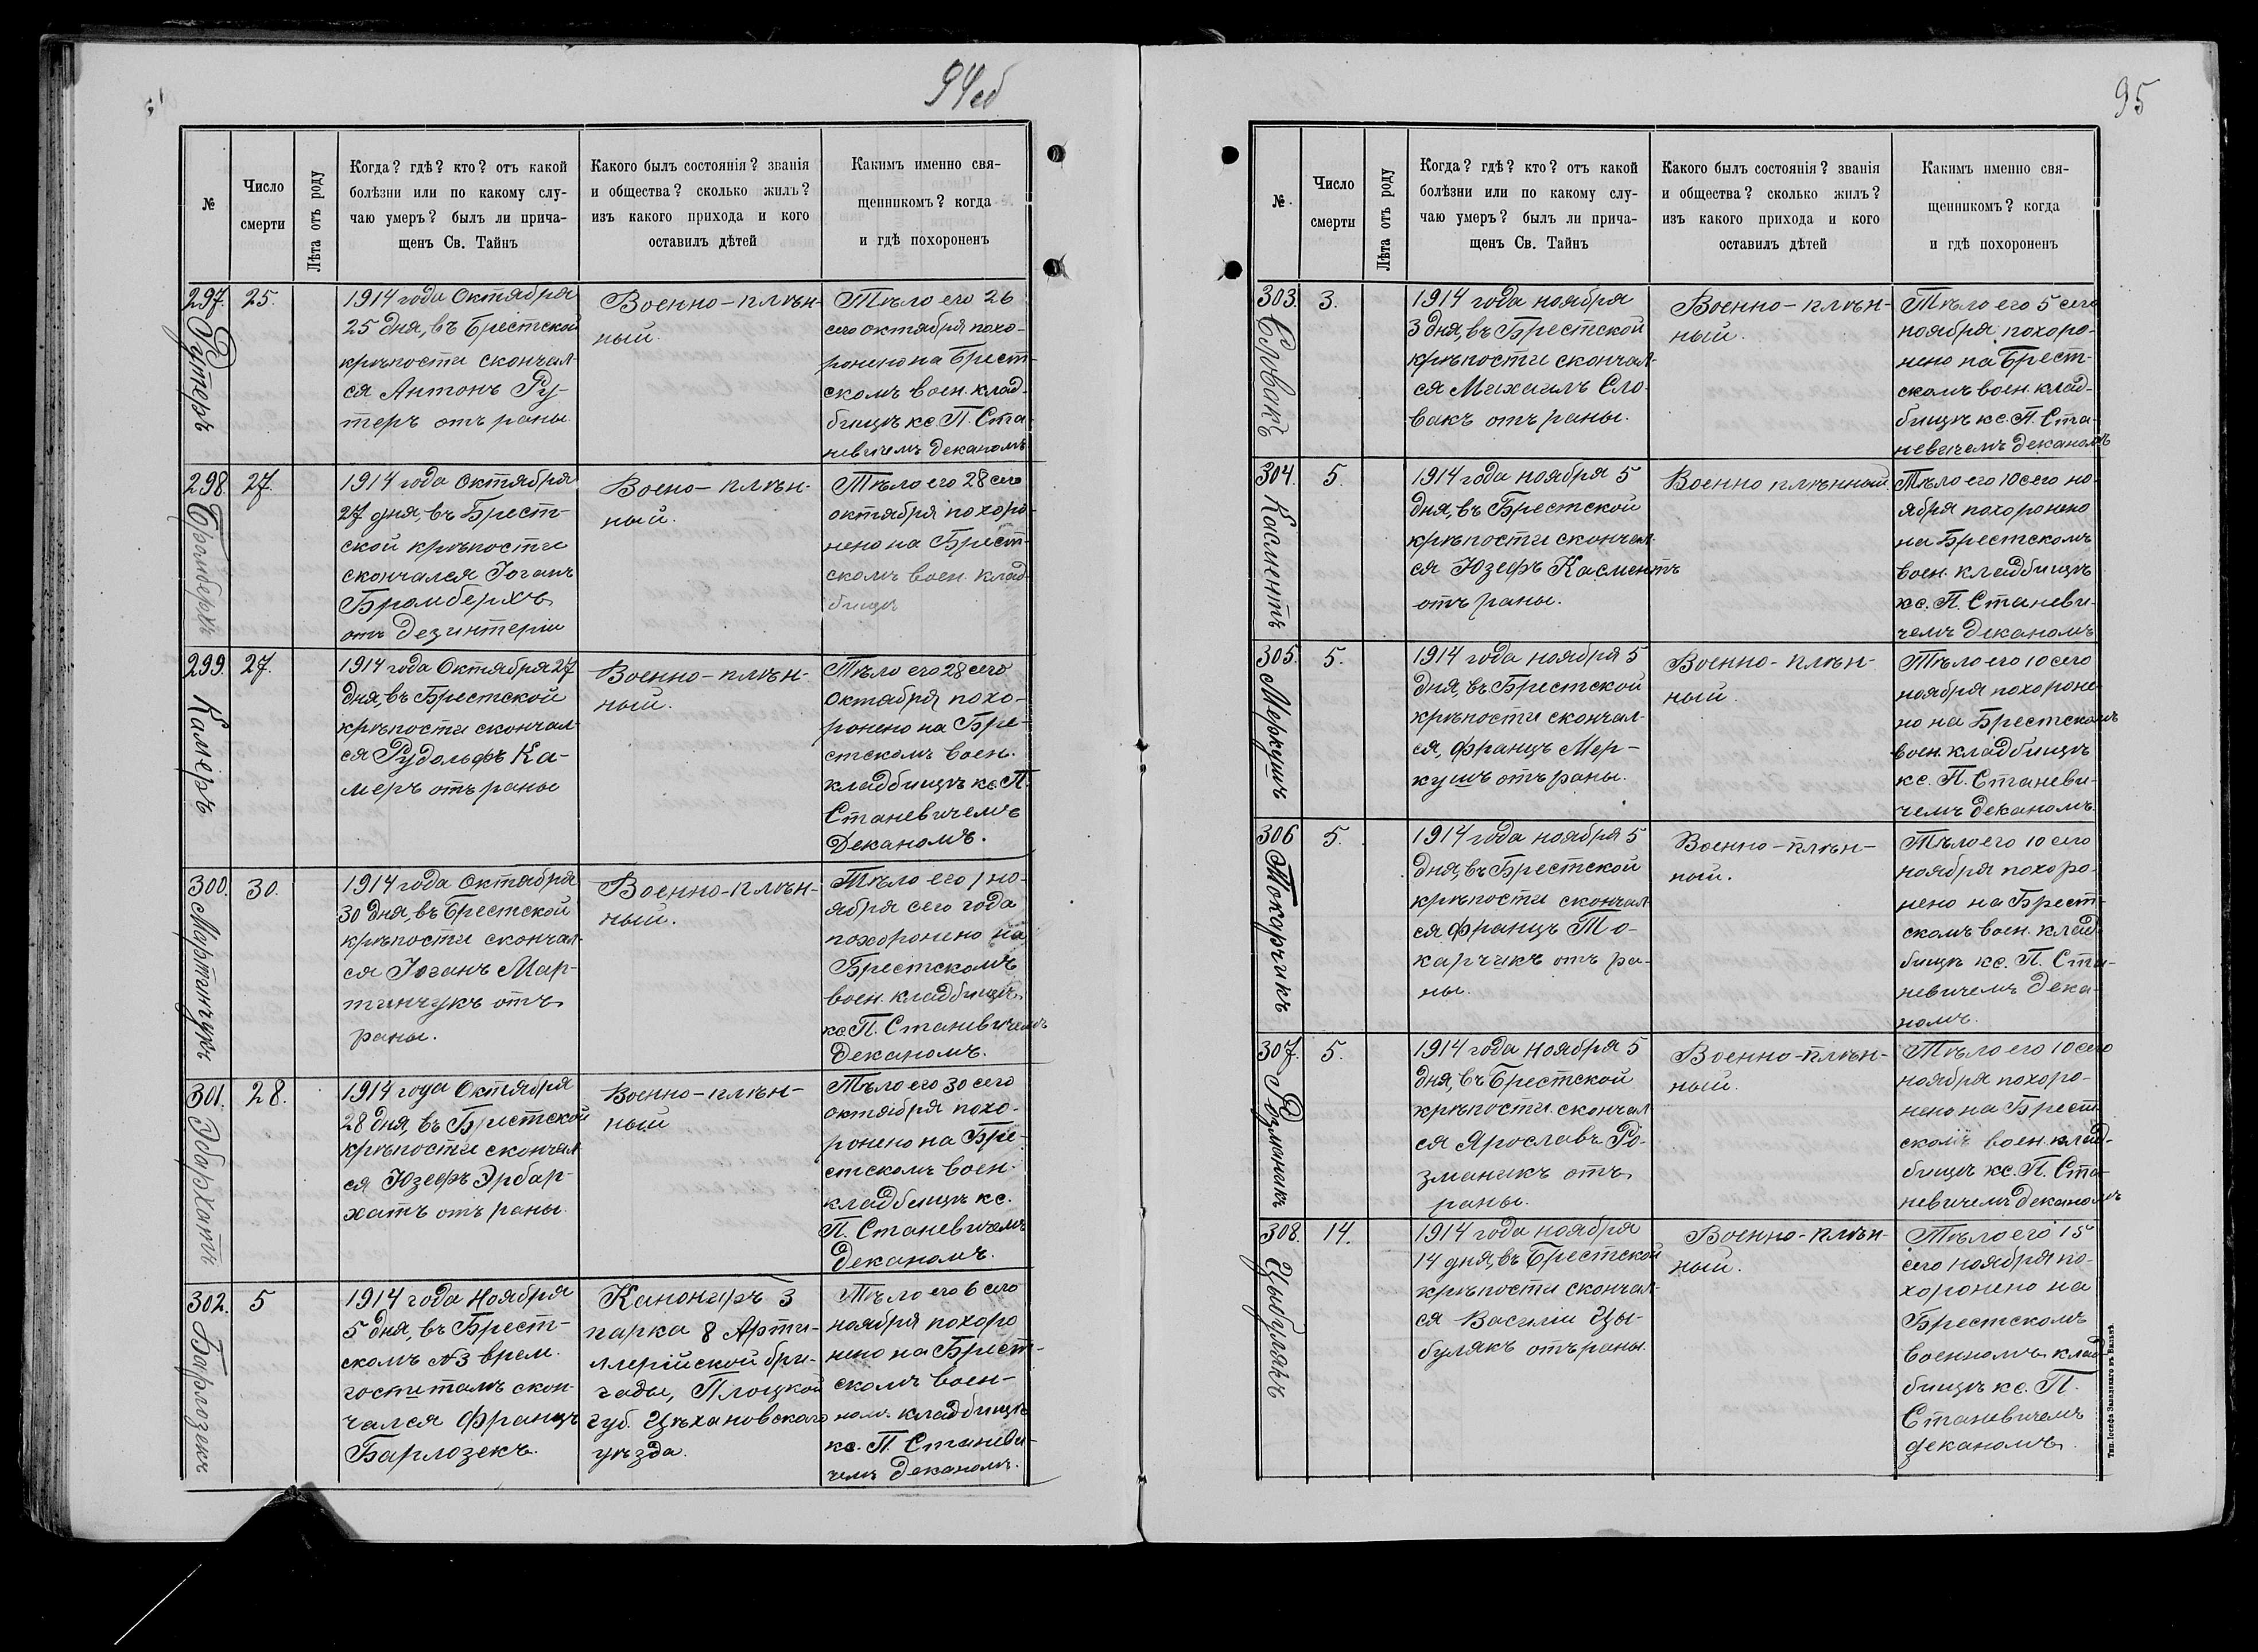 94об
№
Число
смерти
Лѣта отъ роду
Когда? гдѣ? кто? отъ какой
болѣзни или по какому слу-
чаю умеръ? былъ ли прича-
щенъ Св. Тайнъ
Какого былъ состоянія? званія
и общества? сколько жилъ?
изъ какого прихода и кого
оставилъ дѣтей
Каким именно свя-
щенникомъ? когда
и гдѣ похороненъ
297.
Рутеръ
25.
1914 года Октября
25 дня, въ Брестской
крѣпости скончал-
ся Антонъ Ру-
теръ отъ раны
Военно-плѣн-
ный.
Тѣло его 26
сего октября похо-
ронено на Брест-
скомъ воен. клад-
бищѣ кс. П. Ста-
невичемъ деканомъ
298.
Бромберхъ
27.
1914 года Октября
27 дня, въ Брест-
ской крѣпости
скончался Іоганъ
Бромберхъ
отъ дезинтеріи
Воено-плѣн-
ный.
Тѣло его 28 сего
октября похоро-
нено на Брест-
скомъ воен. клад-
бищѣ
299.
Камеръ
27.
1914 года Октября 27
дня, въ Брестской
крѣпости скончал-
ся Рудольфъ Ка-
меръ отъ раны
Военно-плѣн-
ный.
Тѣло его 28 сего
Октября похо-
ронено на Бре-
стскомъ воен.
кладбищѣ кс. П.
Станевичемъ
Деканомъ.
300.
Мартинчукъ
30.
1914 года Октября
30 дня, въ Брестской
крѣпости скончал-
ся Іоганъ Мар-
тинчукъ отъ
раны.
Военно-плѣн-
ный.
Тѣло его 1 но-
ября сего года
похоронено на
Брестскомъ
воен. кладбищѣ
кс. П. Станевичемъ
Деканомъ.
301.
Эбархатъ
28.
1914 года Октября
28 дня, въ Брестской
крѣпости скончал
ся Юзефъ Эрбар-
хатъ отъ раны.
Военно-плѣн-
ный
Тѣло его 30 сего
октября похо-
ронено на Бре-
стскомъ воен.
кладбищѣ кс.
П. Станевичемъ
Деканомъ.
302.
Барлозекъ
5
1914 года Ноября
5 дня, въ Брест-
скомъ №3 врем.
госпиталѣ скон-
чался Францъ
Барлозекъ.
Канониръ 3
парка 8 Арти-
ллерійской бри-
гады, Плоцкой
губ. Цѣхановскаго
уѣзда.
Тѣло его 6 сего
ноября похоро
нено на Брест-
скомъ воен-
номъ кладбищѣ
кс. П. Станеви-
чемъ Деканомъ.
95
№
Число
смерти
Лѣта отъ роду
Когда? гдѣ? кто? отъ какой
болѣзни или по какому слу-
чаю умеръ? былъ ли прича-
щенъ Св. Тайнъ
Какого былъ состоянія? званія
и общества? сколько жилъ?
изъ какого прихода и кого
оставилъ дѣтей
Каким именно свя-
щенникомъ? когда
и гдѣ похороненъ
303.
Словакъ
3.
1914 года ноября
3 дня, въ Брестской
крѣпости скончал-
ся Михаилъ Сло-
вакъ отъ раны.
Военно-плѣн-
ный.
Тѣло его 5 сего
ноября похоро-
нено на Брест-
скомъ воен. клад-
бищѣ кс. П. Ста-
невичемъ деканомъ
304.
Касментъ
5.
1914 года ноября 5
дня, въ Брестской
крѣпости скончал-
ся Юзефъ Касментъ
отъ раны.
Военно плѣнный.
Тѣло его 10 сего но-
ября похоронено
на Брестскомъ
воен. кладбищѣ
кс. П. Станеви-
чемъ Деканомъ
305.
Меркушъ
5.
1914 года ноября 5
дня, въ Брестской
крѣпости скончал-
ся, Францъ Мер-
кушъ отъ раны.
Военно-плѣн-
ный.
Тѣло его 10 сего
ноября похороне-
но на Брестскомъ
воен. кладбищѣ
кс. П. Станеви-
чемъ деканомъ.
306
Токарчикъ
5.
1914 года ноября 5
дня, въ Брестской
крѣпости скончал
ся Францъ То-
карчикъ отъ ра-
ны.
Военно-плѣн-
ный.
Тѣло его 10 сего
ноября похоро-
нено на Брест-
скомъ воен. клад-
бищѣ кс. П. Ста-
невичемъ Дека-
номъ.
307.
Розманикъ
5.
1914 года Ноября 5
дня, въ Брестской
крѣпости скончал
ся Ярославъ Ро-
зманикъ отъ
раны.
Военно-плѣн-
ный.
Тѣло его 10 сего
ноября похоро-
нено на Брест-
скомъ воен. клад-
бищѣ кс. П. Ста-
невичемъ деканомъ
308.
Цыбулякъ
14.
1914 года ноября
14 дня, въ Брестской
крѣпости скончал-
ся Василій Цы-
булякъ отъ раны.
Военно-плѣн-
ный.
Тѣло его 15
сего ноября по-
хоронено на
Брестскомъ
военномъ клад-
бищѣ кс. П.
Станевичемъ
деканомъ.
Тип. Іосифа Завадзкаго въ Вильнѣ.